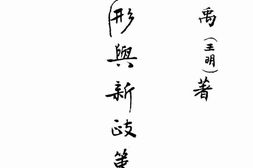 禹(王明)著
形與新政